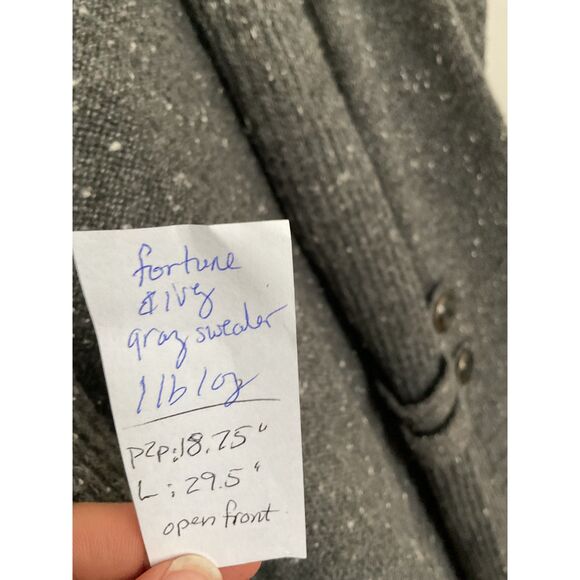 fortune
& ivy
gray sweater
1 lb 1 oz
p2p: 18.75"
L: 29.5"
open front